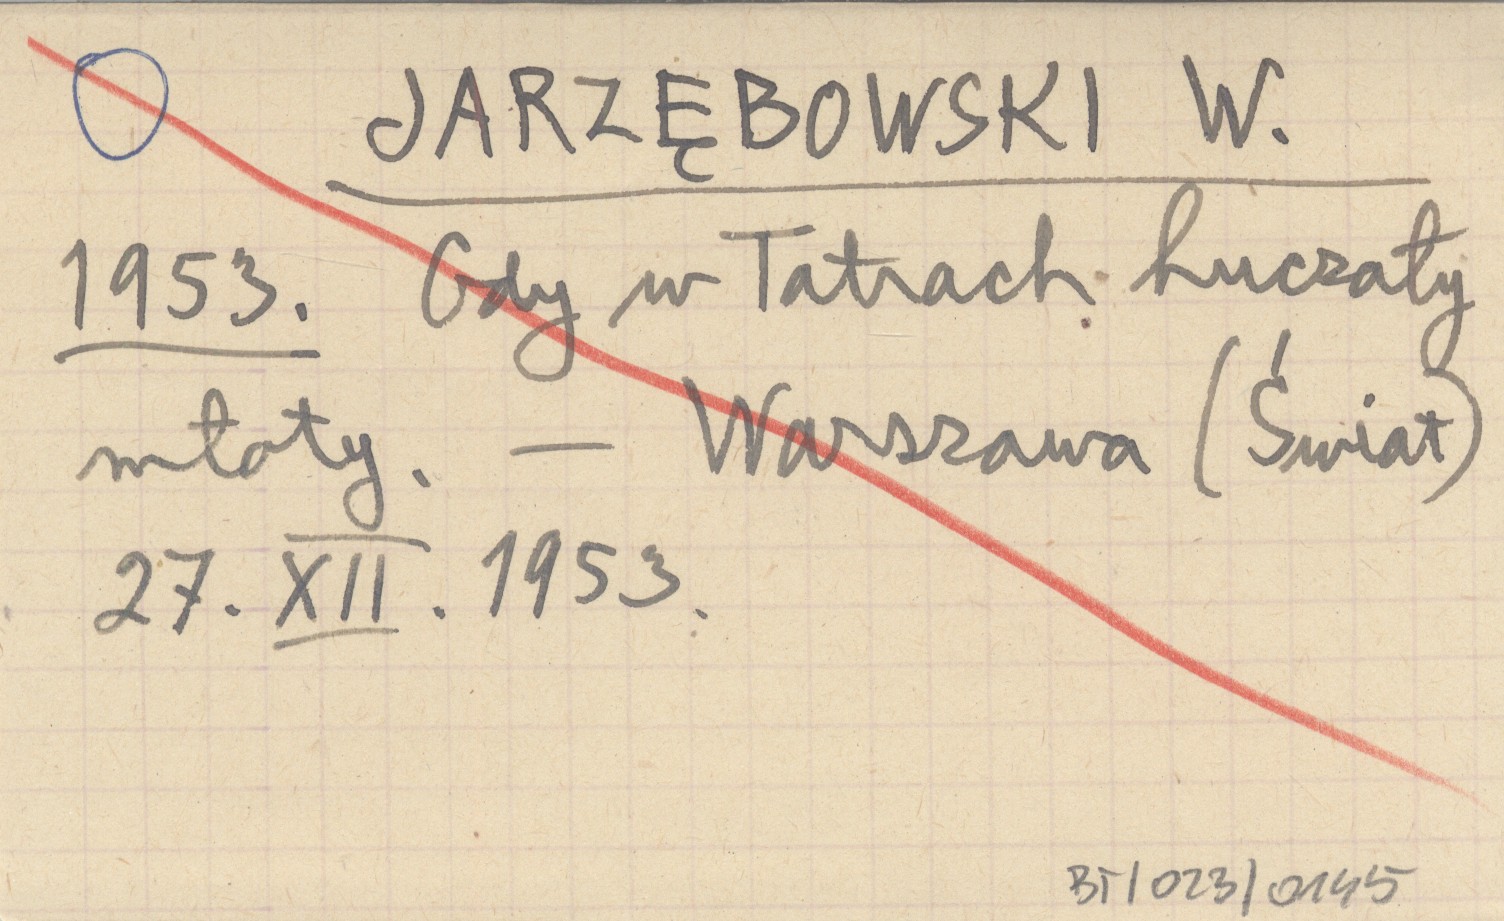 JARZĘBOWSKI W.
1953. Gdy w Tatrach huczały
młoty. — Warszawa (Świat)
27. XII. 1953.
BT/023/0145